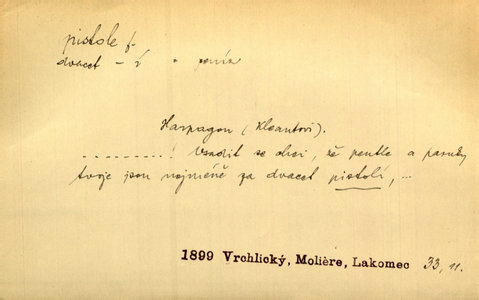 pistole f.
dvacet – í = peníz
Harpagon (Kleantovi).
.........! Vsadit se chci, že pentle a paruky
tvoje jsou nejméně za dvacet pistolí, ...
1899 Vrchlický, Molière, Lakomec 33, 11.